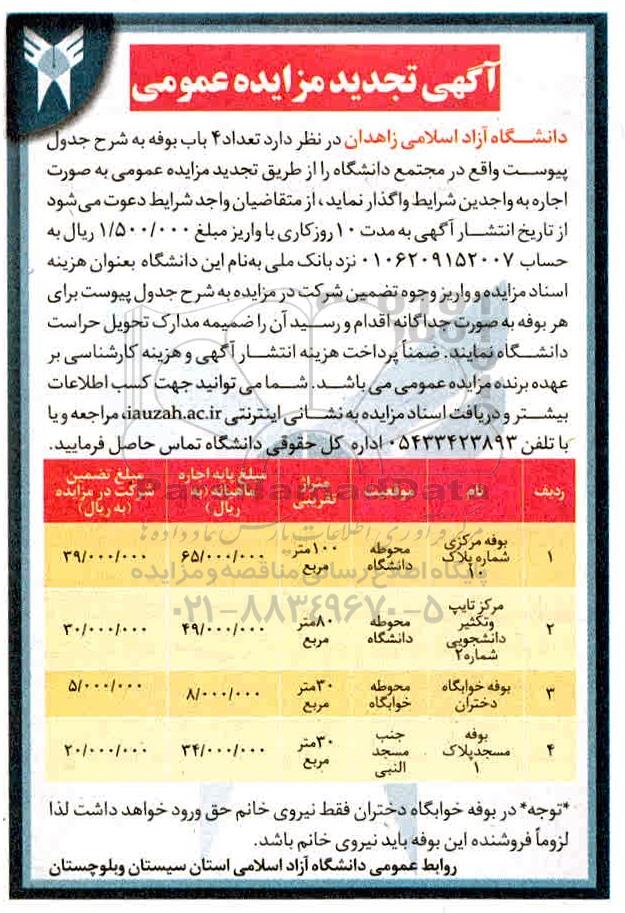 آگهی تجدید مزایده عمومی
دانشگاه آزاد اسلامی زاهدان در نظر دارد تعداد ۴ باب بوفه به شرح جدول
پیوست واقع در مجتمع دانشگاه را از طریق تجدید مزایده عمومی به صورت
اجاره به واجدین شرایط واگذار نماید، از متقاضیان واجد شرایط دعوت می شود
از تاریخ انتشار آگهی به مدت ۱۰ روزکاری با واریز مبلغ ۱/۵۰۰/۰۰۰ ریال به
حساب ۰۱۰۶۲۰۹۱۵۲۰۰۷ نزد بانک ملی به‌نام این دانشگاه بعنوان هزینه
اسناد مزایده و واریز وجوه تضمین شرکت در مزایده به شرح جدول پیوست برای
هر بوفه به صورت جداگانه اقدام و رسید آن را ضمیمه مدارک تحویل حراست
دانشگاه نمایند. ضمناً پرداخت هزینه انتشار آگهی و هزینه کارشناسی بر
عهده برنده مزایده عمومی می باشد. شما می توانید جهت کسب اطلاعات
بیشتر و دریافت اسناد مزایده به نشانی اینترنتی iauzah.ac.ir، مراجعه و یا
با تلفن ۰۵۴۳۳۴۲۳۸۹۳ اداره کل حقوقی دانشگاه تماس حاصل فرمایید.
ردیف نام موقعیت متراژ تقریبی مبلغ پایه اجاره ماهیانه (به ریال) مبلغ تضمین شرکت در مزایده (به ریال)
۱ بوفه مرکزی شماره پلاک ۱۰ محوطه دانشگاه ۱۰۰متر مربع ۶۵/۰۰۰/۰۰۰ ۳۹/۰۰۰/۰۰۰
۲ مرکز تایپ وتکثیر دانشجویی شماره۲ محوطه دانشگاه ۸۰متر مربع ۴۹/۰۰۰/۰۰۰ ۳۰/۰۰۰/۰۰۰
۳ بوفه خوابگاه دختران محوطه خوابگاه ۳۰متر مربع ۸/۰۰۰/۰۰۰ ۵/۰۰۰/۰۰۰
۴ بوفه مسجدپلاک ۱ جنب مسجد النبی ۳۰متر مربع ۳۴/۰۰۰/۰۰۰ ۲۰/۰۰۰/۰۰۰
ParsNamadData
مرکز فرآوری اطلاعات پارس نماد داده ها
پایگاه اطلاع رسانی مناقصه و مزایده
۰۲۱-۸۸۳۴۹۶۷۰-۵
*توجه* در بوفه خوابگاه دختران فقط نیروی خانم حق ورود خواهد داشت لذا
لزوماً فروشنده این بوفه باید نیروی خانم باشد.
روابط عمومی دانشگاه آزاد اسلامی استان سیستان وبلوچستان